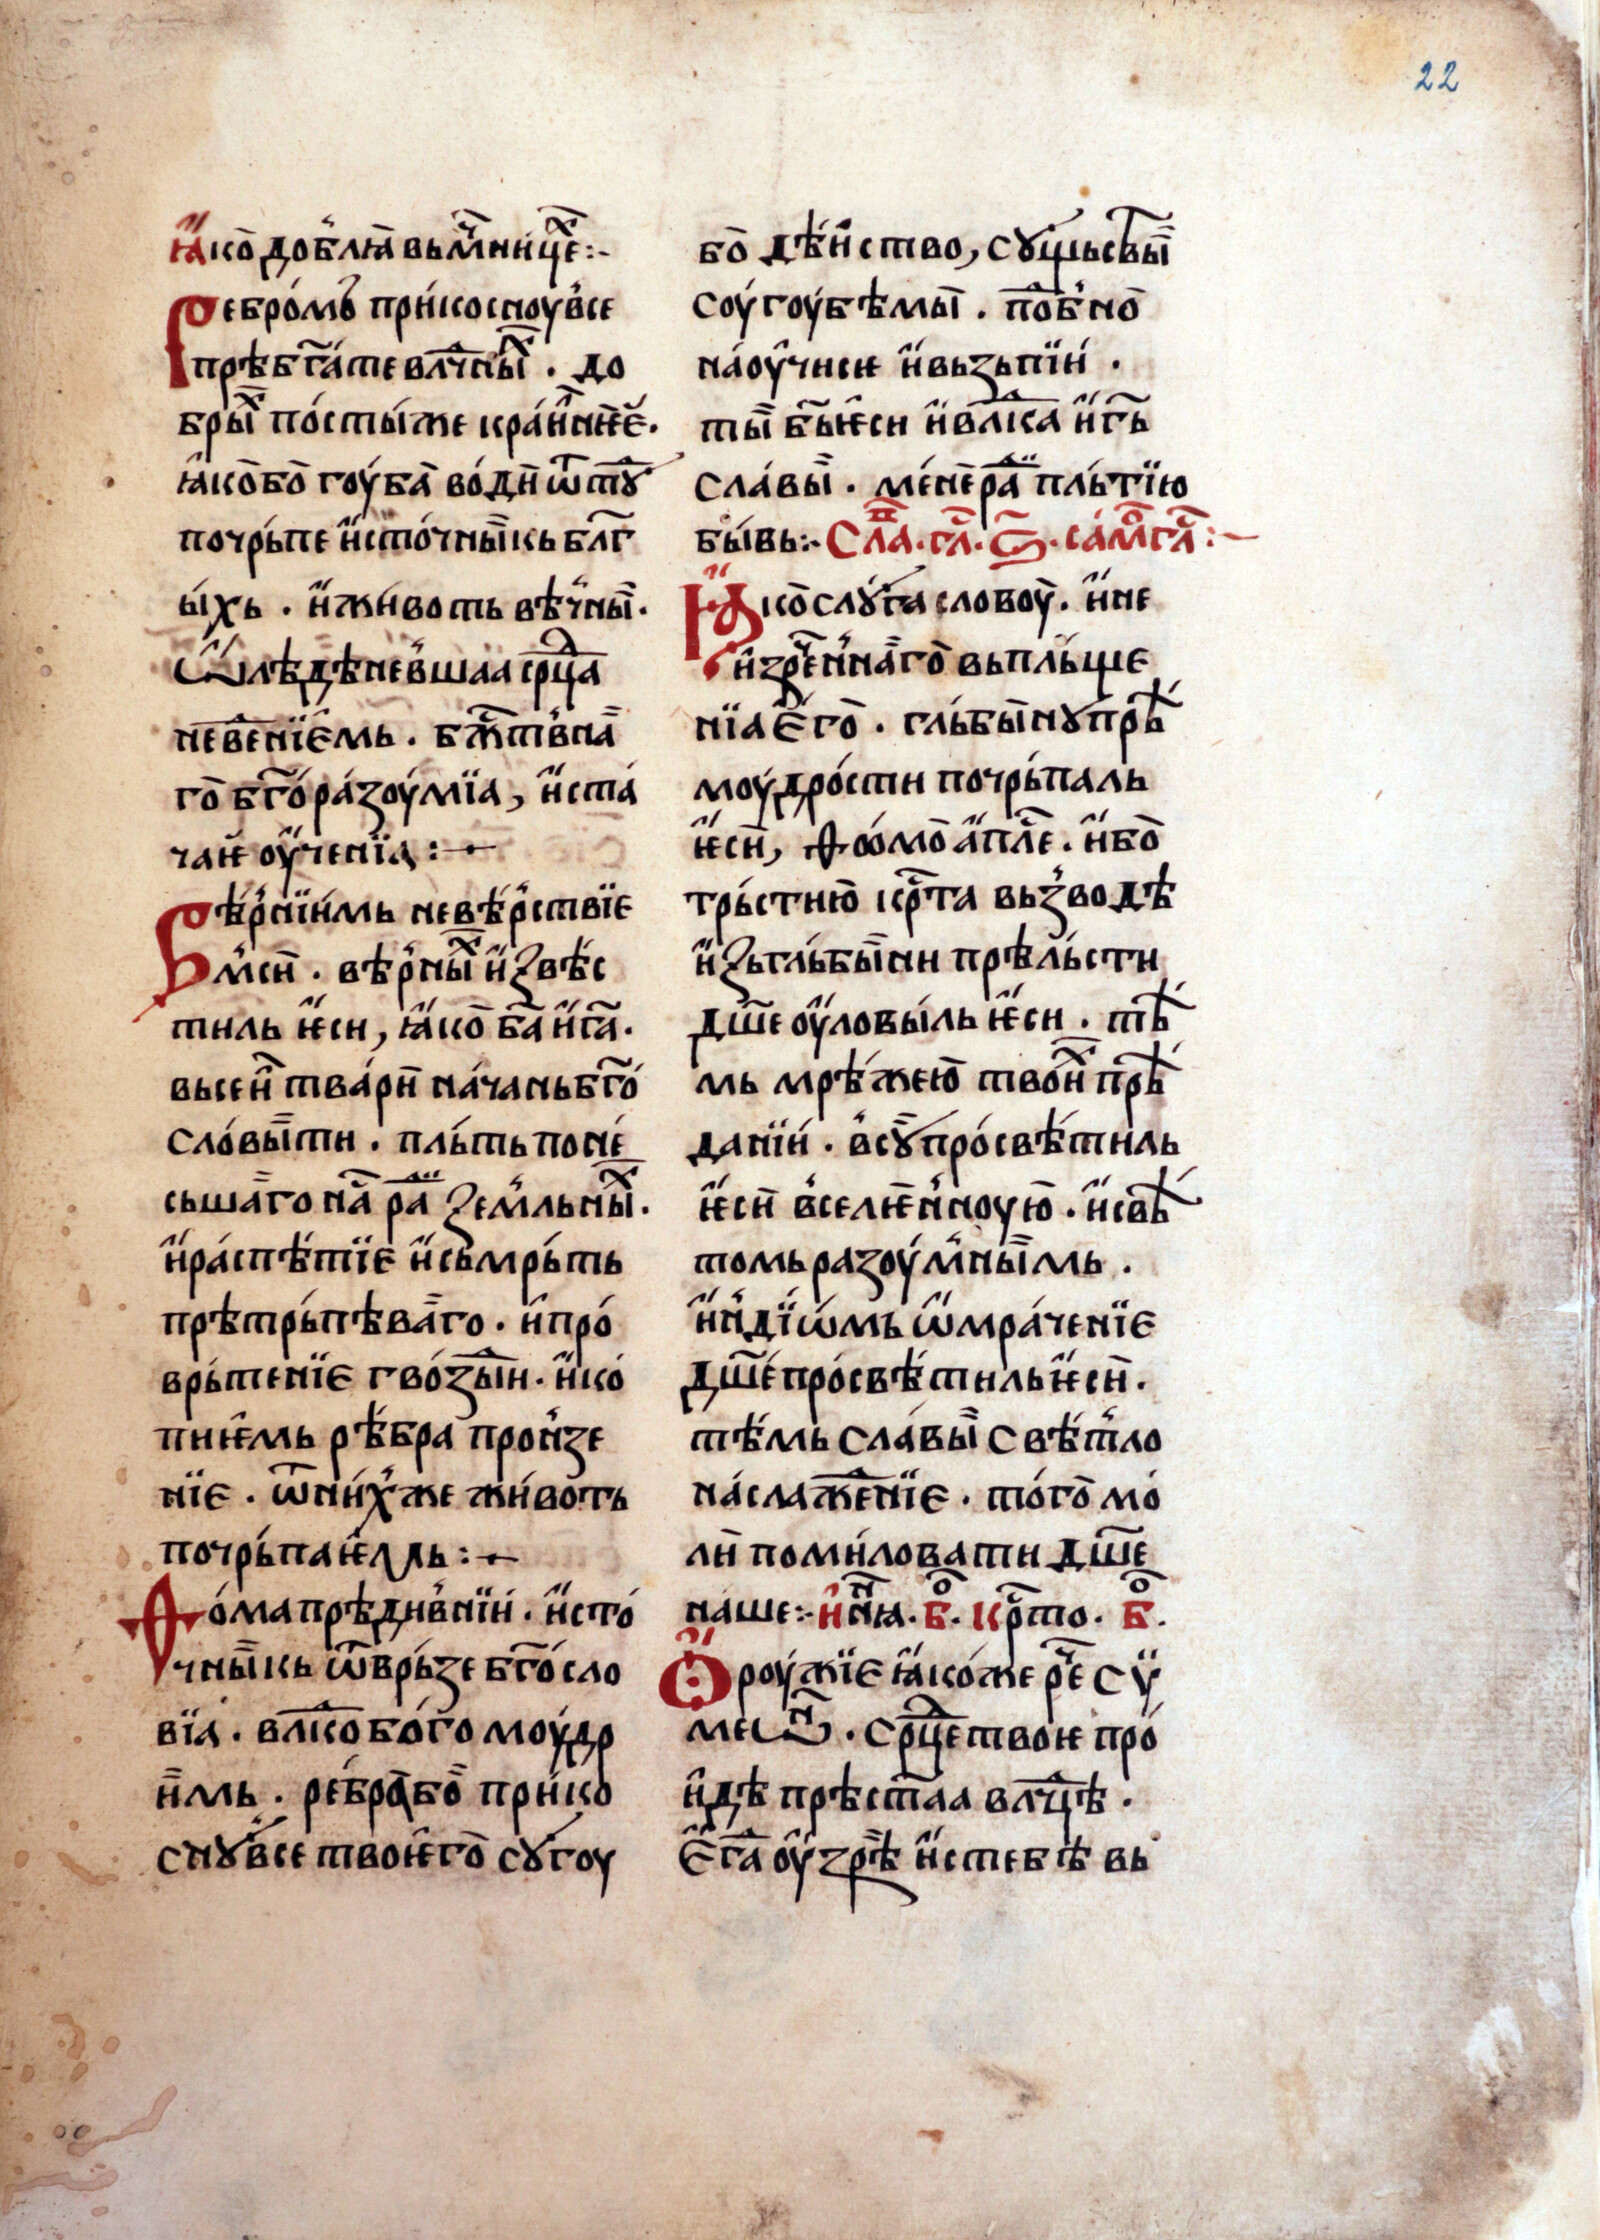 22
ꙗ҆ко̀ до́блꙗ вь мⷱ҇ни́цеⷯ:-
Ребро́мь прико́сноувсе
прѣбг҃а́те влⷣчныⷯ . до
брыⷯ по́стыже кра́инѥе҆ .
ꙗ҆ко̀бо гоу́ба во́ди ѿтꙋⷣ
почрь́пе и҆сто́чныкь блг҃
ы́хь . и҆ животь вѣ́чны .
Ѡ҆лѣдѣневшаа срⷣца
невⷣенїемь . бжⷭ҇твна
го бг҃ора́зоу́мїа, и҆ста́
чаѥ оу҆ченїа :-
Вѣ́рнїимь невѣ́рствїе
мси . вѣ́рныⷯ и҆звѣ́с
тиль ѥ҆си, ꙗ҆ко̀ ба҃ и҆ га҃ .
высеи тва́ри на́чань бг҃о́
сло́выти . пль́ть поне́
сьша́го на́ⷭ раⷣ земльныⷯ .
и҆ ра́спѣ́тїе и҆ сьмрь́ть
прѣтрьпѣва́го . и҆ про́
врь́тенїе гво́зⷣьи . и҆ ко́
пиѥмь рѣ́бра про́изе
нїе . ѿни́хже жи́воть
почрь́паѥ҆ль :-
Ѳома прѣ́дивнїи . и҆сто́
чныкь ѿврь́зе бг҃о́сло
вїа . влⷣко бо́го моу́др
имь . ре́бра бо̀ при́ко
снꙋвсе твоѥго̀ сꙋгоу
бо̀ дѣ́иство, сꙋщьсвы
соу́гоу́бѣмы . поⷣбно̀
на́оу҆чисѥ и҆ вьзьпїи́ .
ты̀ бь҃ ѥ҆си и҆ влⷣка и҆ гь҃
сла́вы . ме́не раⷣ пль́тїю
бы́вь:- Слаⷡ . глⷭ . ѕ҃ . са́моⷢ глⷭ :-
Ꙗ҆ко̀ слꙋга словоу . и҆ не
и҆зреⷱннаго вьпль́ще
нїа е҆го̀ . гль́бы́нꙋ прѣ́
моу́дро́сти почрь́паль
ѥ҆си, Ѳѡмо̀ а҆плⷭ҇е . и҆бо̀
трь́стию крⷭ҇та вьзводѣ
и҆зьгль́бы́ни прѣль́сти
дш҃е оу҆ловы́ль ѥ҆си . тѣ́
мь мрѣ́жею твоиⷯ прѣ́
данїи . всꙋ̀ про́свѣ́тиль
ѥ҆си вселѥнноую . и҆ свѣ́
томь разоу́мнымь .
и҆ндїѡ҆мь ѡ҆мра́ченїе
дш҃е́ про́свѣ́тиль ѥ҆си .
тѣ́мь сла́вы свѣ́тло
на́слажⷣенїе . то́го̀ мо́
ли поми́ловати дш҃е
наше:- и҆ ниⷩ҇ꙗ . боⷢ . крⷭ҇то . боⷢ .
Ѻ҆роу́жїе ꙗ҆ко́же реⷱ сѵ̈
меѡⷩ . срⷣце твоѥ про́
идѣ прѣстаⷭ҇а влⷣчцѣ .
е҆гⷣа оу҆зрѣ́ и҆с тебѣ вь